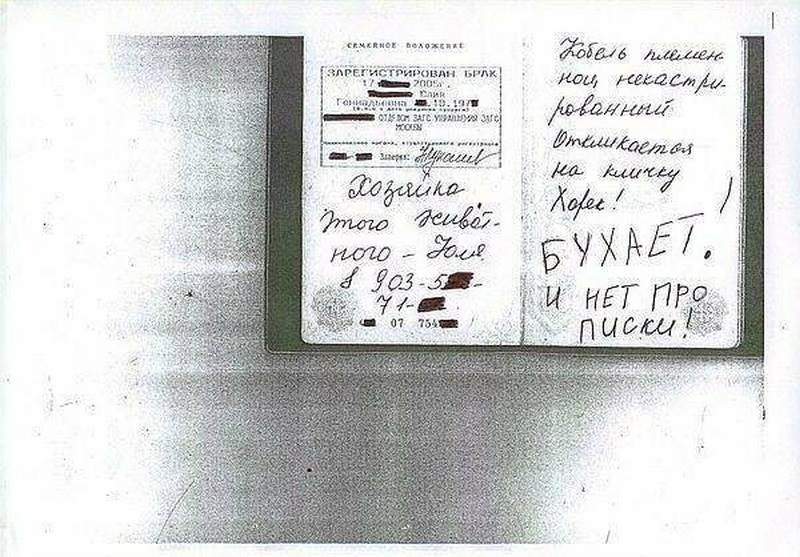 СЕМЕЙНОЕ ПОЛОЖЕНИЕ
ЗАРЕГИСТРИРОВАН БРАК
17 2005г.
Юлия
Геннадьевна .10.197
ОТДЕЛОМ ЗАГС УПРАВЛЕНИЯ ЗАГС
МОСКВЫ
Заверил:
Хозяйка
этого живот-
ного - Юля
8 903-5
71-
07 754
Кобель племен-
ной некастри-
рованный
Откликается
на кличку
Хорек!
БУХАЕТ.
И НЕТ ПРО
ПИСКИ!